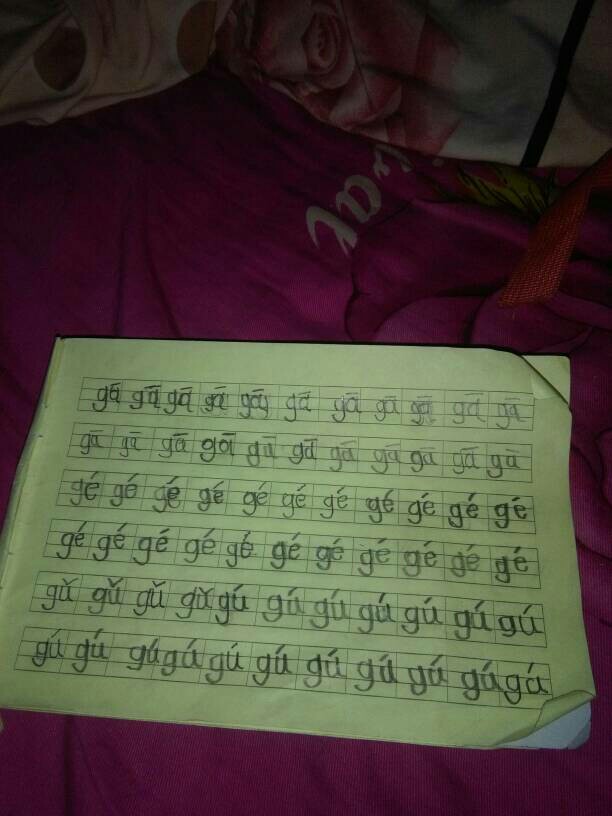 gā gā gā gā gā gā gā gā gā gā gā
gā gā gā gā gā gā gā gā ga gā gā
gé gé gé gé gé gé gé gé gé gé gé
gé gé gé gé gé gé gé gé gé gé gé
gǔ gǔ gǔ gǔ gú gú gú gú gú gú gú
gú gú gú gú gú gú gú gú gú gú gú